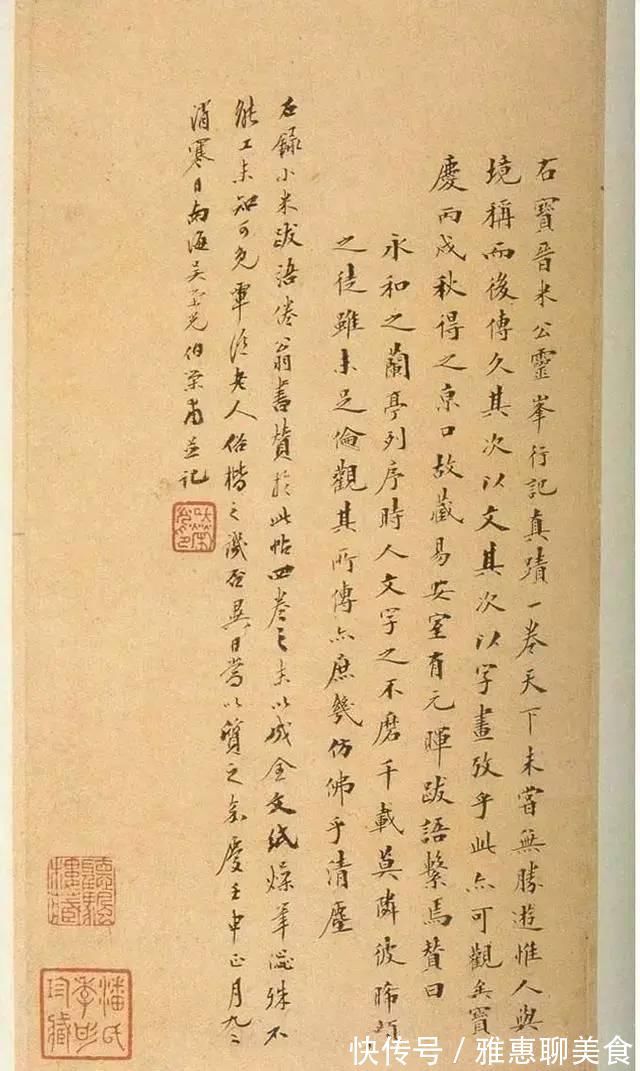 右寶晉米公靈峯行記真蹟一卷天下未嘗無勝遊惟人與
境稱而後傳久其次以文其次以字畫攷乎此亦可觀矣寶
慶丙戌秋得之京口故藏易安室有元暉跋語繫焉贊曰
永和之蘭亭列序時人文字之不磨千載莫隣彼晞
之徒雖未足倫觀其所傳亦庶幾仿佛乎清塵
右錄小米跋語倦翁書贊於此帖四卷之末以成全文紙燥筆澁殊不
能工未知可免覃谿老人俗楷之譏否異日當以質之嘉慶壬申正月九
消寒日南海吳榮光伯榮甫並記
吳榮光印
聽颿樓藏
潘氏季彤珍藏
快传号/雅惠聊美食